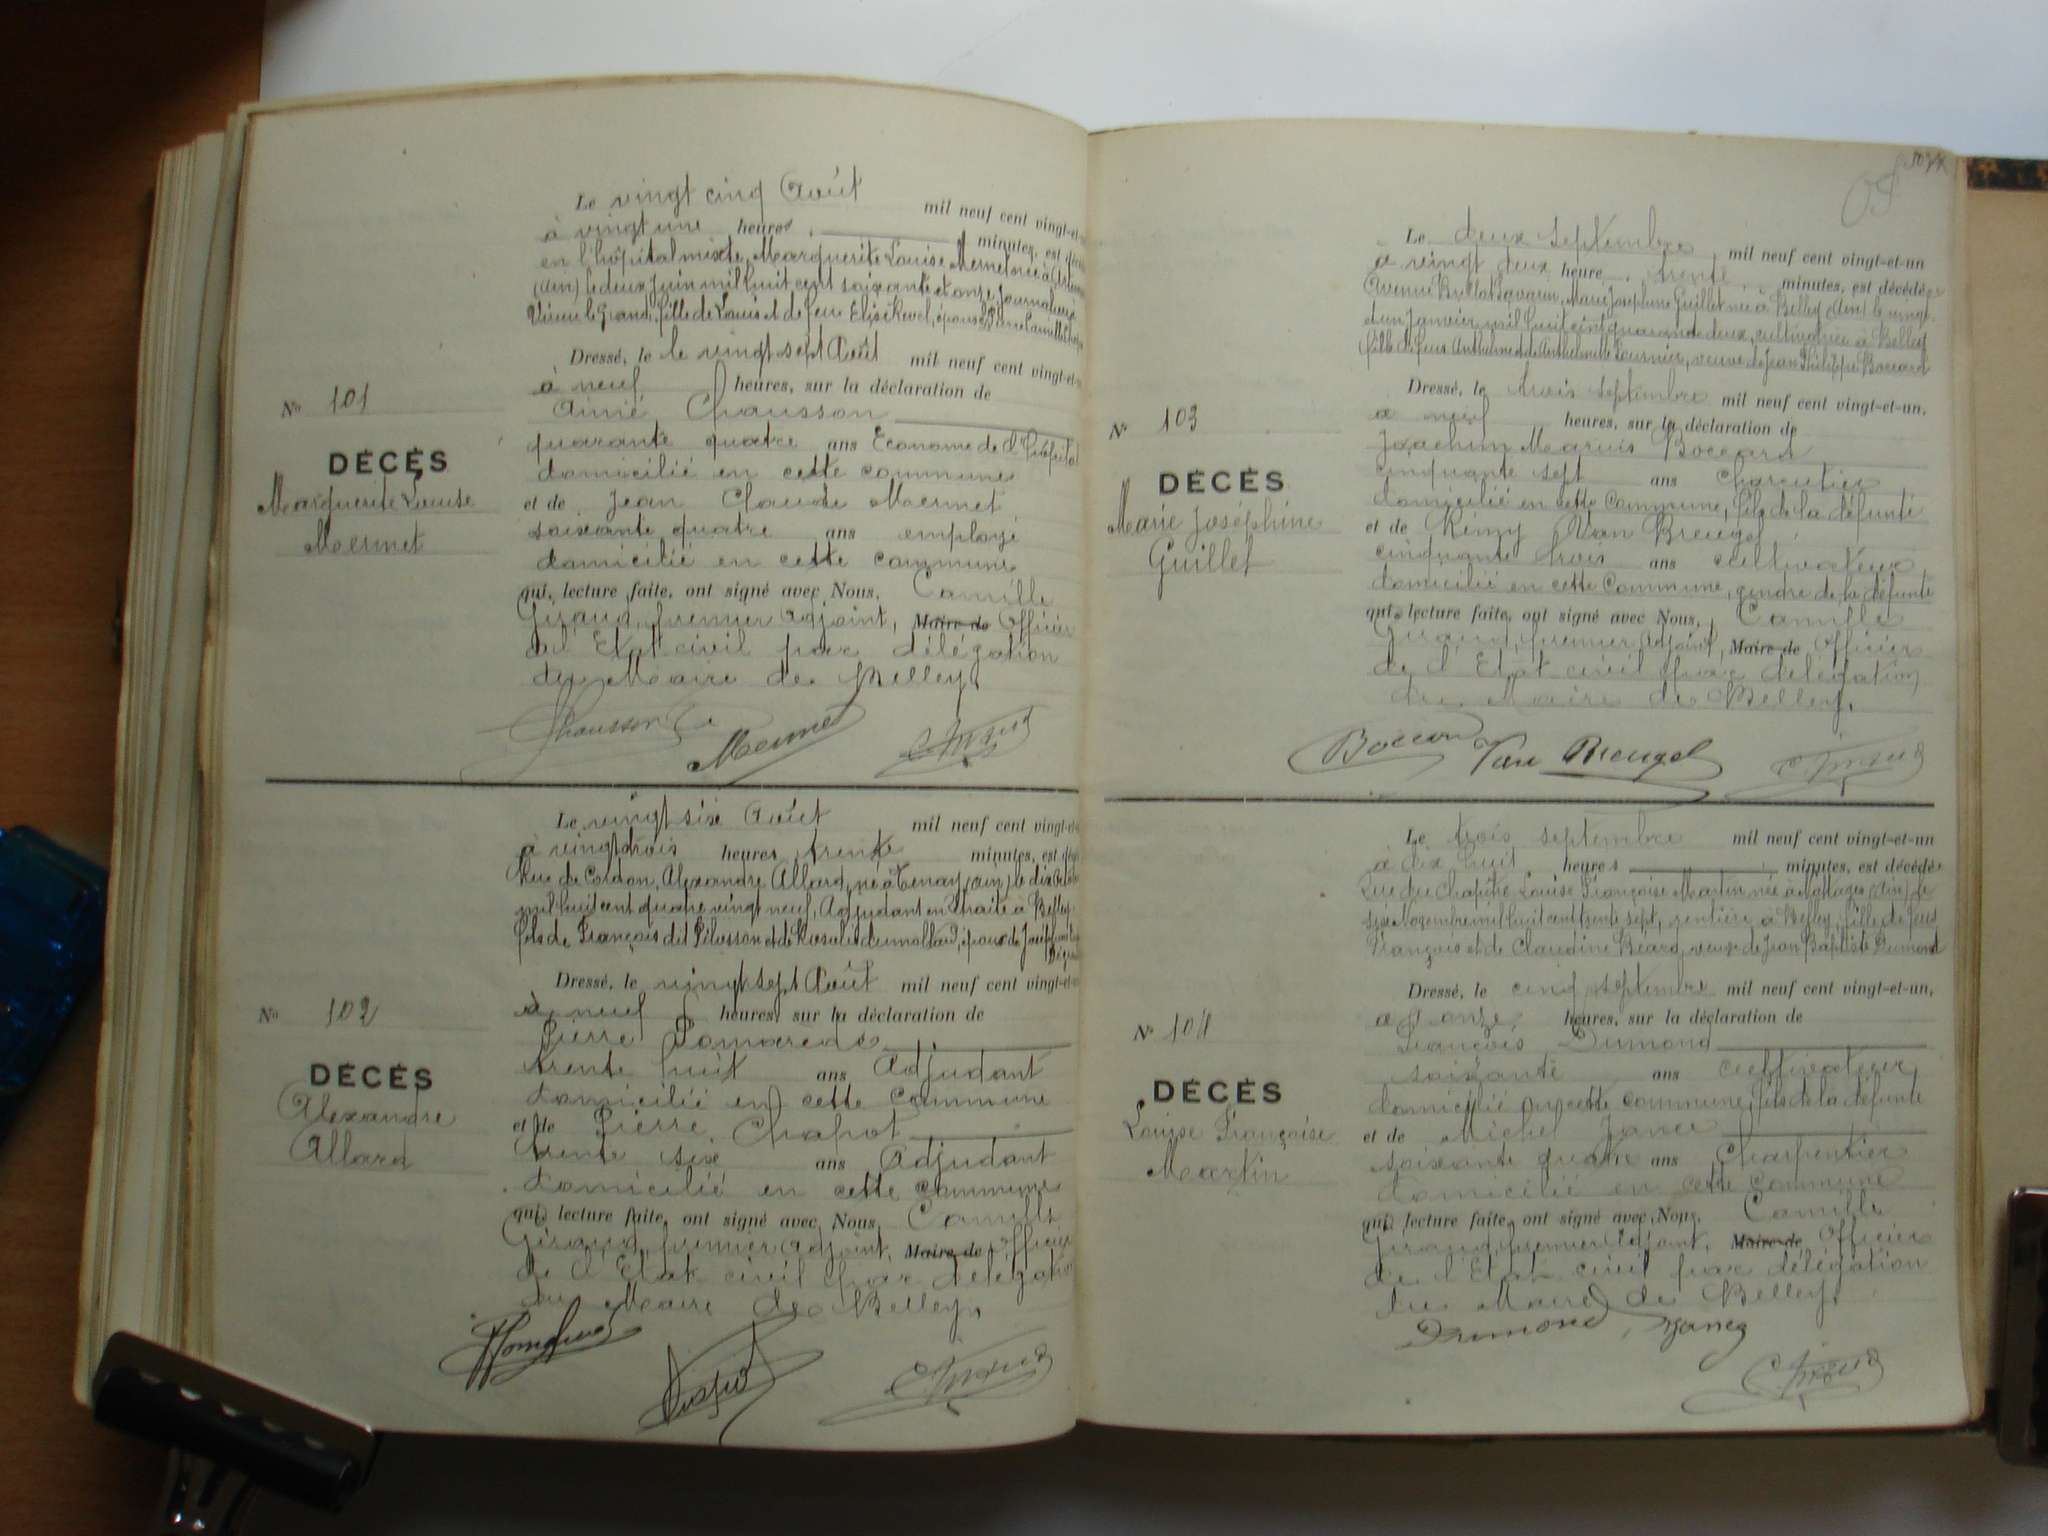 Le vingt cinq Août mil neuf cent vingt-et-
à vingt une heures, minutes, est
en l'hôpital mixte, Marguerite Louise Mermet née à
(Ain) le deux Juin mil huit cent soixante et onze, Journalière à
Virieu le Grand, fille de Louis et de feue Elise Revel, épouse Pierre Camille
Dressé, le le vingt sept Août mil neuf cent vingt-et-
à neuf heures, sur la déclaration de
Aimé Chausson
quarante quatre ans Econome de l'hôpital
domicilié en cette commune
et de Jean Claude Mermet
soixante quatre ans employé
domicilié en cette commune
qui, lecture faite, ont signé avec Nous, Camille
Giraud, premier adjoint, Maire de Officier
de l'Etat civil par délégation
du Maire de Belley.
Chausson Mermet C. Giraud
N° 101
DÉCÈS
Marguerite Louise
Mermet
Le vingt six Août mil neuf cent vingt-et-
à vingt trois heures trente minutes, est
Rue de Cordon, Alexandre Allard, né à Tenay (Ain) le dix
mil huit cent quatre vingt neuf, Adjudant en retraite à Belley
fils de François dit Pélusson et de Rosalie Dumollard, époux de
Dressé, le vingt sept Août mil neuf cent vingt-et-
à neuf heures, sur la déclaration de
Pierre Pomarède
trente huit ans Adjudant
domicilié en cette commune
et de Pierre Chapot
trente six ans Adjudant
domicilié en cette commune
qui, lecture faite, ont signé avec Nous, Camille
Giraud, premier adjoint, Maire de Officier
de l'Etat civil par délégation
du Maire de Belley.
C. Giraud
N° 102
DÉCÈS
Alexandre
Allard
Le deux septembre mil neuf cent vingt-et-un
à vingt deux heure trente minutes, est décédée
Avenue Brillat Savarin, Marie Joséphine Guillet née à Belley (Ain) le vingt
et un Janvier mil huit cent quarante deux, cultivatrice à Belley
fille de feus Anthelme et de Anthelmette Fournier, veuve de Jean Philippe Boccard
Dressé, le trois septembre mil neuf cent vingt-et-un,
à neuf heures, sur la déclaration de
Joachim Marius Boccard
cinquante sept ans Charcutier
domicilié en cette Commune, fils de la défunte
et de Rémy Van Breugel,
cinquante trois ans cultivateur
domicilié en cette Commune, gendre de la défunte
qui, lecture faite, ont signé avec Nous, Camille
Giraud, premier adjoint, Maire de Officier
de l'Etat civil par délégation
du Maire de Belley.
Boccard Van Breugel C. Giraud
N° 103
DÉCÈS
Marie Joséphine
Guillet
Le trois septembre mil neuf cent vingt-et-un
à dix huit heures minutes, est décédé
Rue du Chapitre Louise Françoise Martin née à Nattages (Ain) le
six Novembre mil huit cent trente sept, rentière à Belley, fille de feus
François et de Claudine Béard, veuve de Jean Baptiste Dumond
Dressé, le cinq septembre mil neuf cent vingt-et-un,
à onze heures, sur la déclaration de
François Dumond
soixante ans cultivateur
domicilié en cette commune, fils de la défunte
et de Michel Janez
soixante quatre ans Charpentier
domicilié en cette commune
qui, lecture faite, ont signé avec Nous, Camille
Giraud, premier adjoint, Maire de Officier
de l'Etat civil par délégation
du Maire de Belley.
Dumond Janez
C. Giraud
N° 104
DÉCÈS
Louise Françoise
Martin